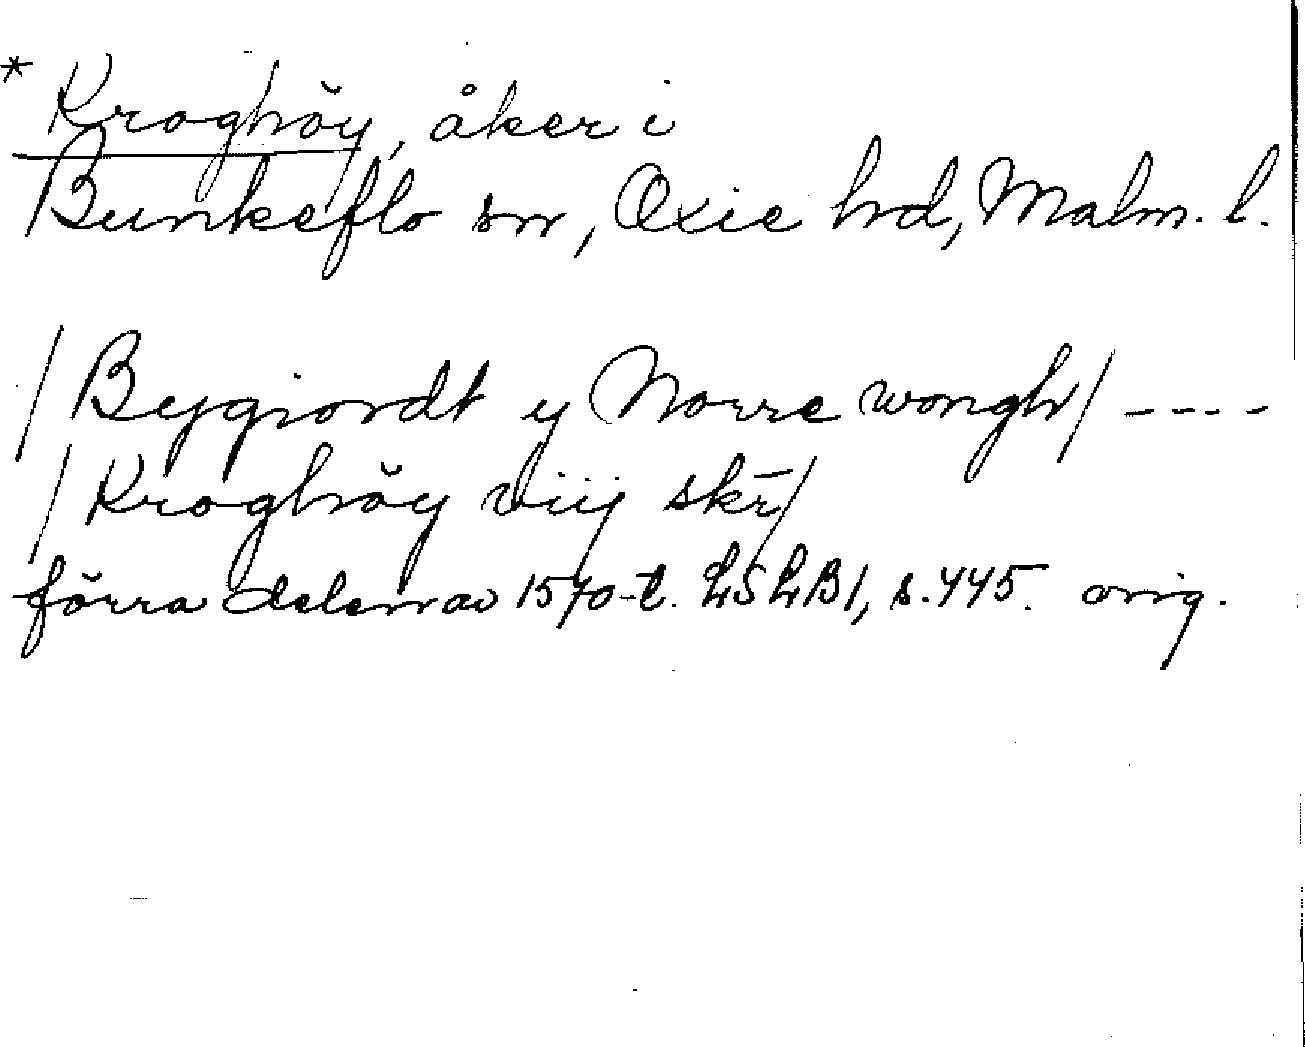 * Kroghöy, åker i
Bunkeflo sn, Oxie hd, Malm. l.
/Bygiordt y Norre wongh/ ----
/Kroghöy viij skr̄/
förra delen av 1570-t. LSLB1, s. 445. orig.